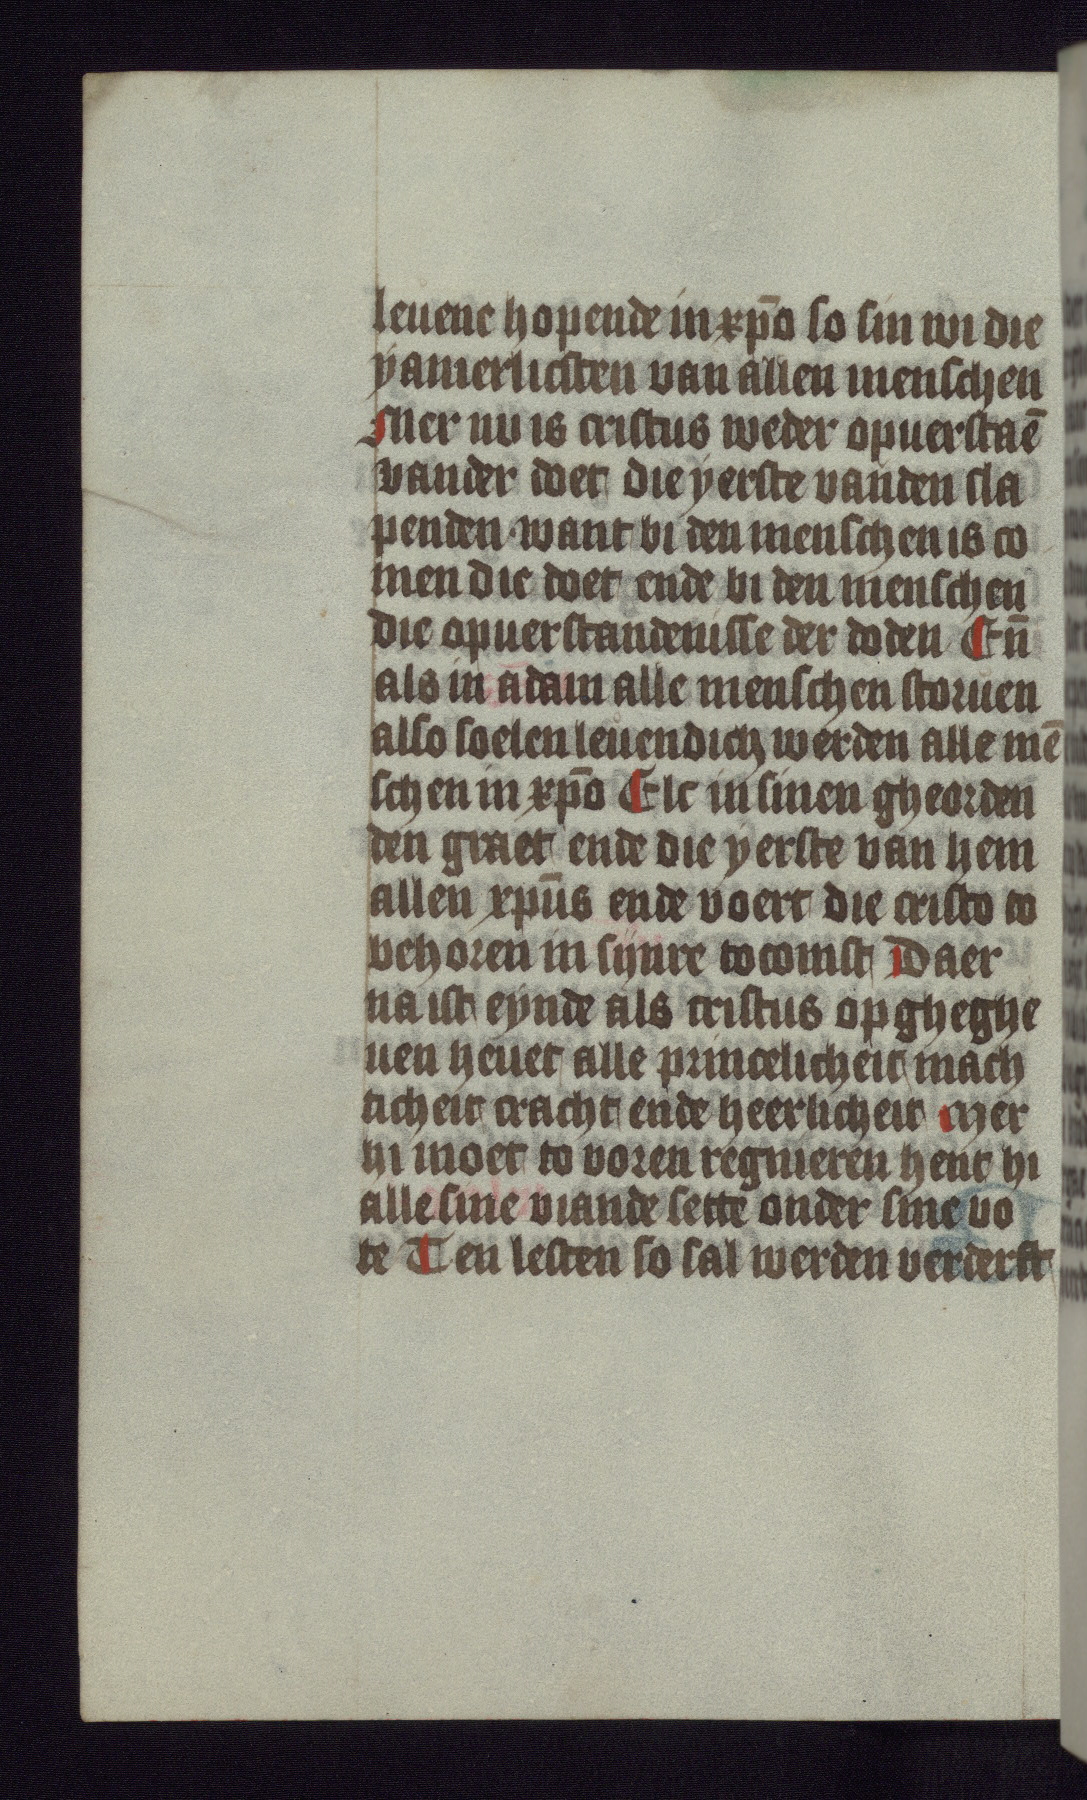 leuene hopende in xp̄o so sin wi die
yamerlicsten van allen menschen
Mer nu is cristus weder opuerstaē
vander doet die yerste vanden sla
penden·want bi den menschen is co
men die doet ende bi den menschen
die opuerstandenisse der doden En̄
als in adam alle menschen storuen
also soelen leuendich werden alle mē
schen in xp̄o Elc in sinen gheorden
den graet ende die yerste van hem
allen xpūs ende voert die cristo to
behoren in sijnre tocomst Daer
na ist eynde als cristus opgheghe
uen heuet alle princelicheit mach
ticheit cracht ende heerlicheit Mer
hi moet to voren regnieren hent hi
alle sine viande sette onder sine vo
te Ten lesten so sal werden verderft